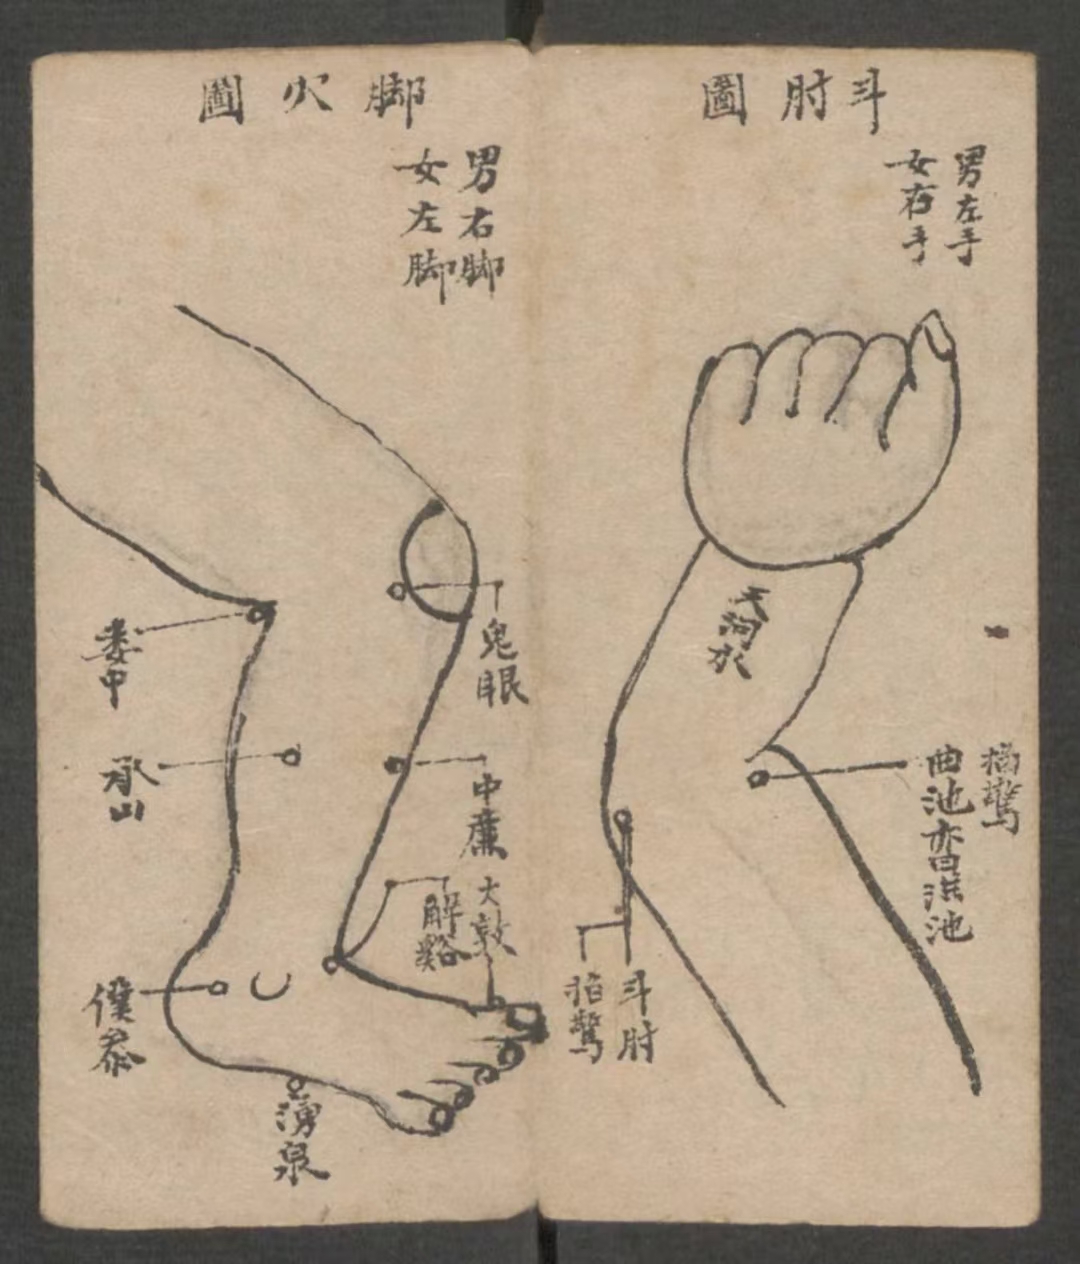 斗肘圖
男左手
女右手
天河水
搐驚
曲池亦曰洪池
斗肘
掐驚
脚穴圖
男右脚
女左脚
鬼眼
中廉
大敦
解谿
委中
承山
僕叅
湧泉